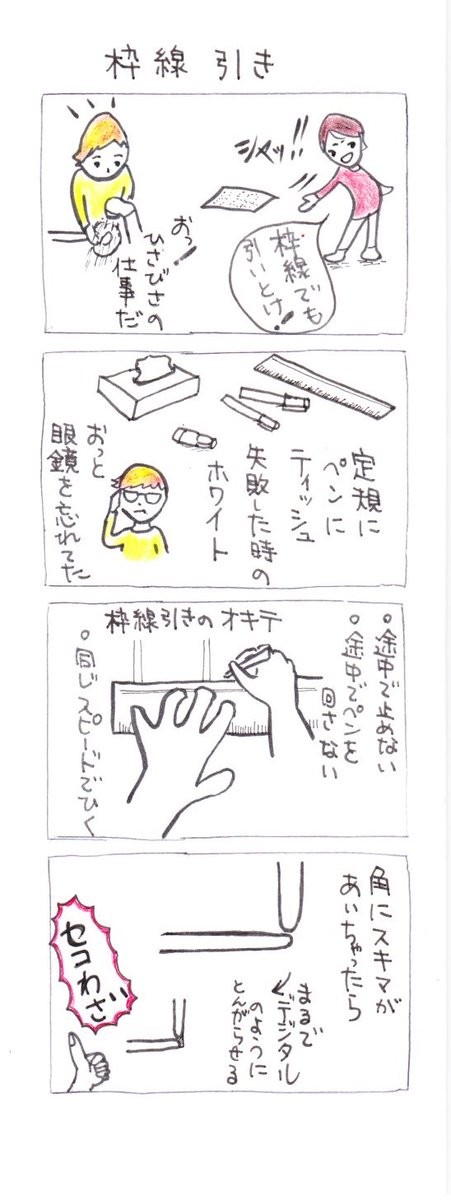 枠線引き
シャッ!!
枠線でも
引いとけ!
おっ!
ひさびさの
仕事だ
定規に
ペンに
ティッシュ
失敗した時の
ホワイト
おっと
眼鏡を忘れてた
枠線引きのオキテ
。途中で止めない
。途中でペンを
回さない
。同じスピードでひく
角にスキマが
あいちゃったら
まるで
デジタル
のように
とんがらせる
セコわざ